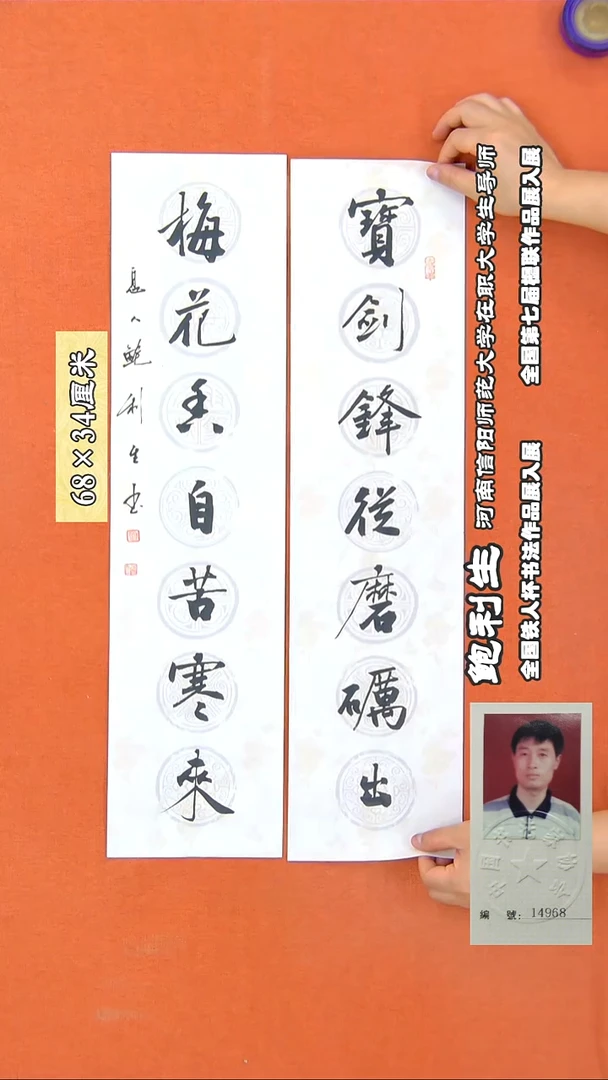 寶劍鋒從磨礪出
梅花香自苦寒來
息人鮑利生书
68×34厘米
鲍利生 河南信阳师范大学在职大学生导师
全国铁人杯书法作品展入展 全国第七届楹联作品展入展
編 號: 14968